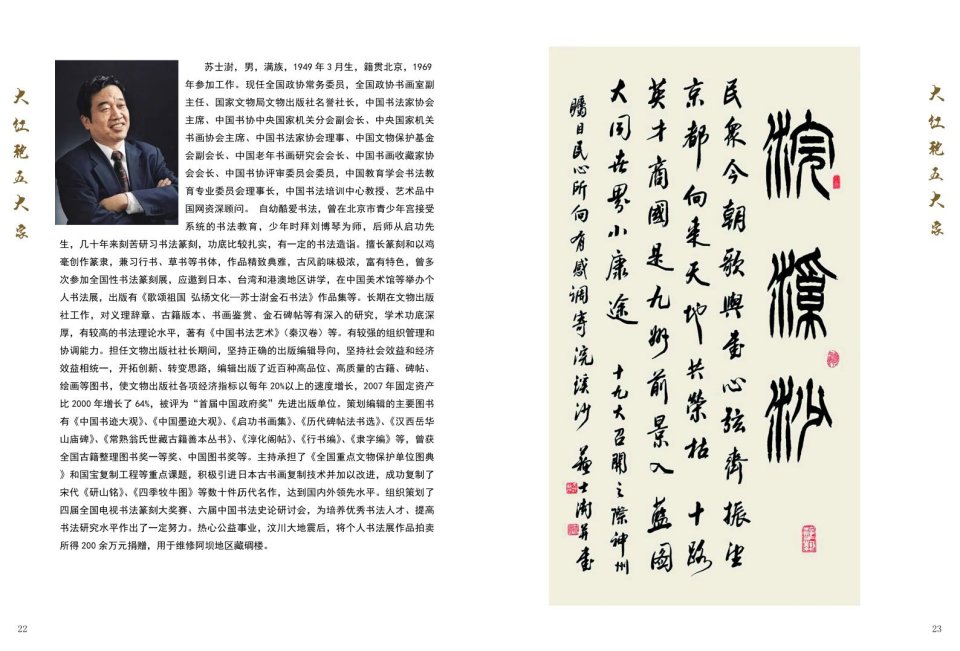 大红袍五大家
苏士澍,男,满族,1949年3月生,籍贯北京,1969
年参加工作。现任全国政协常务委员,全国政协书画室副
主任、国家文物局文物出版社名誉社长,中国书法家协会
主席、中国书协中央国家机关分会副会长、中央国家机关
书画协会主席、中国书法家协会理事、中国文物保护基金
会副会长、中国老年书画研究会会长、中国书画收藏家协
会会长、中国书协评审委员会委员、中国教育学会书法教
育专业委员会理事长,中国书法培训中心教授、艺术品中
国网资深顾问。 自幼酷爱书法,曾在北京市青少年宫接受
系统的书法教育,少年时拜刘博琴为师,后师从启功先
生,几十年来刻苦研习书法篆刻,功底比较扎实,有一定的书法造诣。擅长篆刻和以鸡
毫创作篆隶,兼习行书、草书等书体,作品精致典雅,古风韵味极浓,富有特色,曾多
次参加全国性书法篆刻展,应邀到日本、台湾和港澳地区讲学,在中国美术馆等举办个
人书法展,出版有《歌颂祖国 弘扬文化—苏士澍金石书法》作品集等。长期在文物出版
社工作,对义理辞章、古籍版本、书画鉴赏、金石碑帖等有深入的研究,学术功底深
厚,有较高的书法理论水平,著有《中国书法艺术》(秦汉卷)等。有较强的组织管理和
协调能力。担任文物出版社社长期间,坚持正确的出版编辑导向,坚持社会效益和经济
效益相统一,开拓创新、转变思路,编辑出版了近百种高品位、高质量的古籍、碑帖、
绘画等图书,使文物出版社各项经济指标以每年20%以上的速度增长,2007年固定资产
比2000年增长了64%,被评为“首届中国政府奖”先进出版单位。策划编辑的主要图书
有《中国书迹大观》、《中国墨迹大观》、《启功书画集》、《历代碑帖法书选》、《汉西岳华
山庙碑》、《常熟翁氏世藏古籍善本丛书》、《淳化阁帖》、《行书编》、《隶字编》等,曾获
全国古籍整理图书奖一等奖、中国图书奖等。主持承担了《全国重点文物保护单位图典
》和国宝复制工程等重点课题,积极引进日本古书画复制技术并加以改进,成功复制了
宋代《研山铭》、《四季牧牛图》等数十件历代名作,达到国内外领先水平。组织策划了
四届全国电视书法篆刻大奖赛、六届中国书法史论研讨会,为培养优秀书法人才、提高
书法研究水平作出了一定努力。热心公益事业,汶川大地震后,将个人书法展作品拍卖
所得200余万元捐赠,用于维修阿坝地区藏碉楼。
22
浣溪沙
民衆今朝歌與書心弦齊振望
京都向來天地共榮枯 十路
英才商國是九州前景入藍圖
大同世界小康途 十九大召開之際神州
矚目民心所向有感調寄浣溪沙 蘇士澍并書
大红袍五大家
23